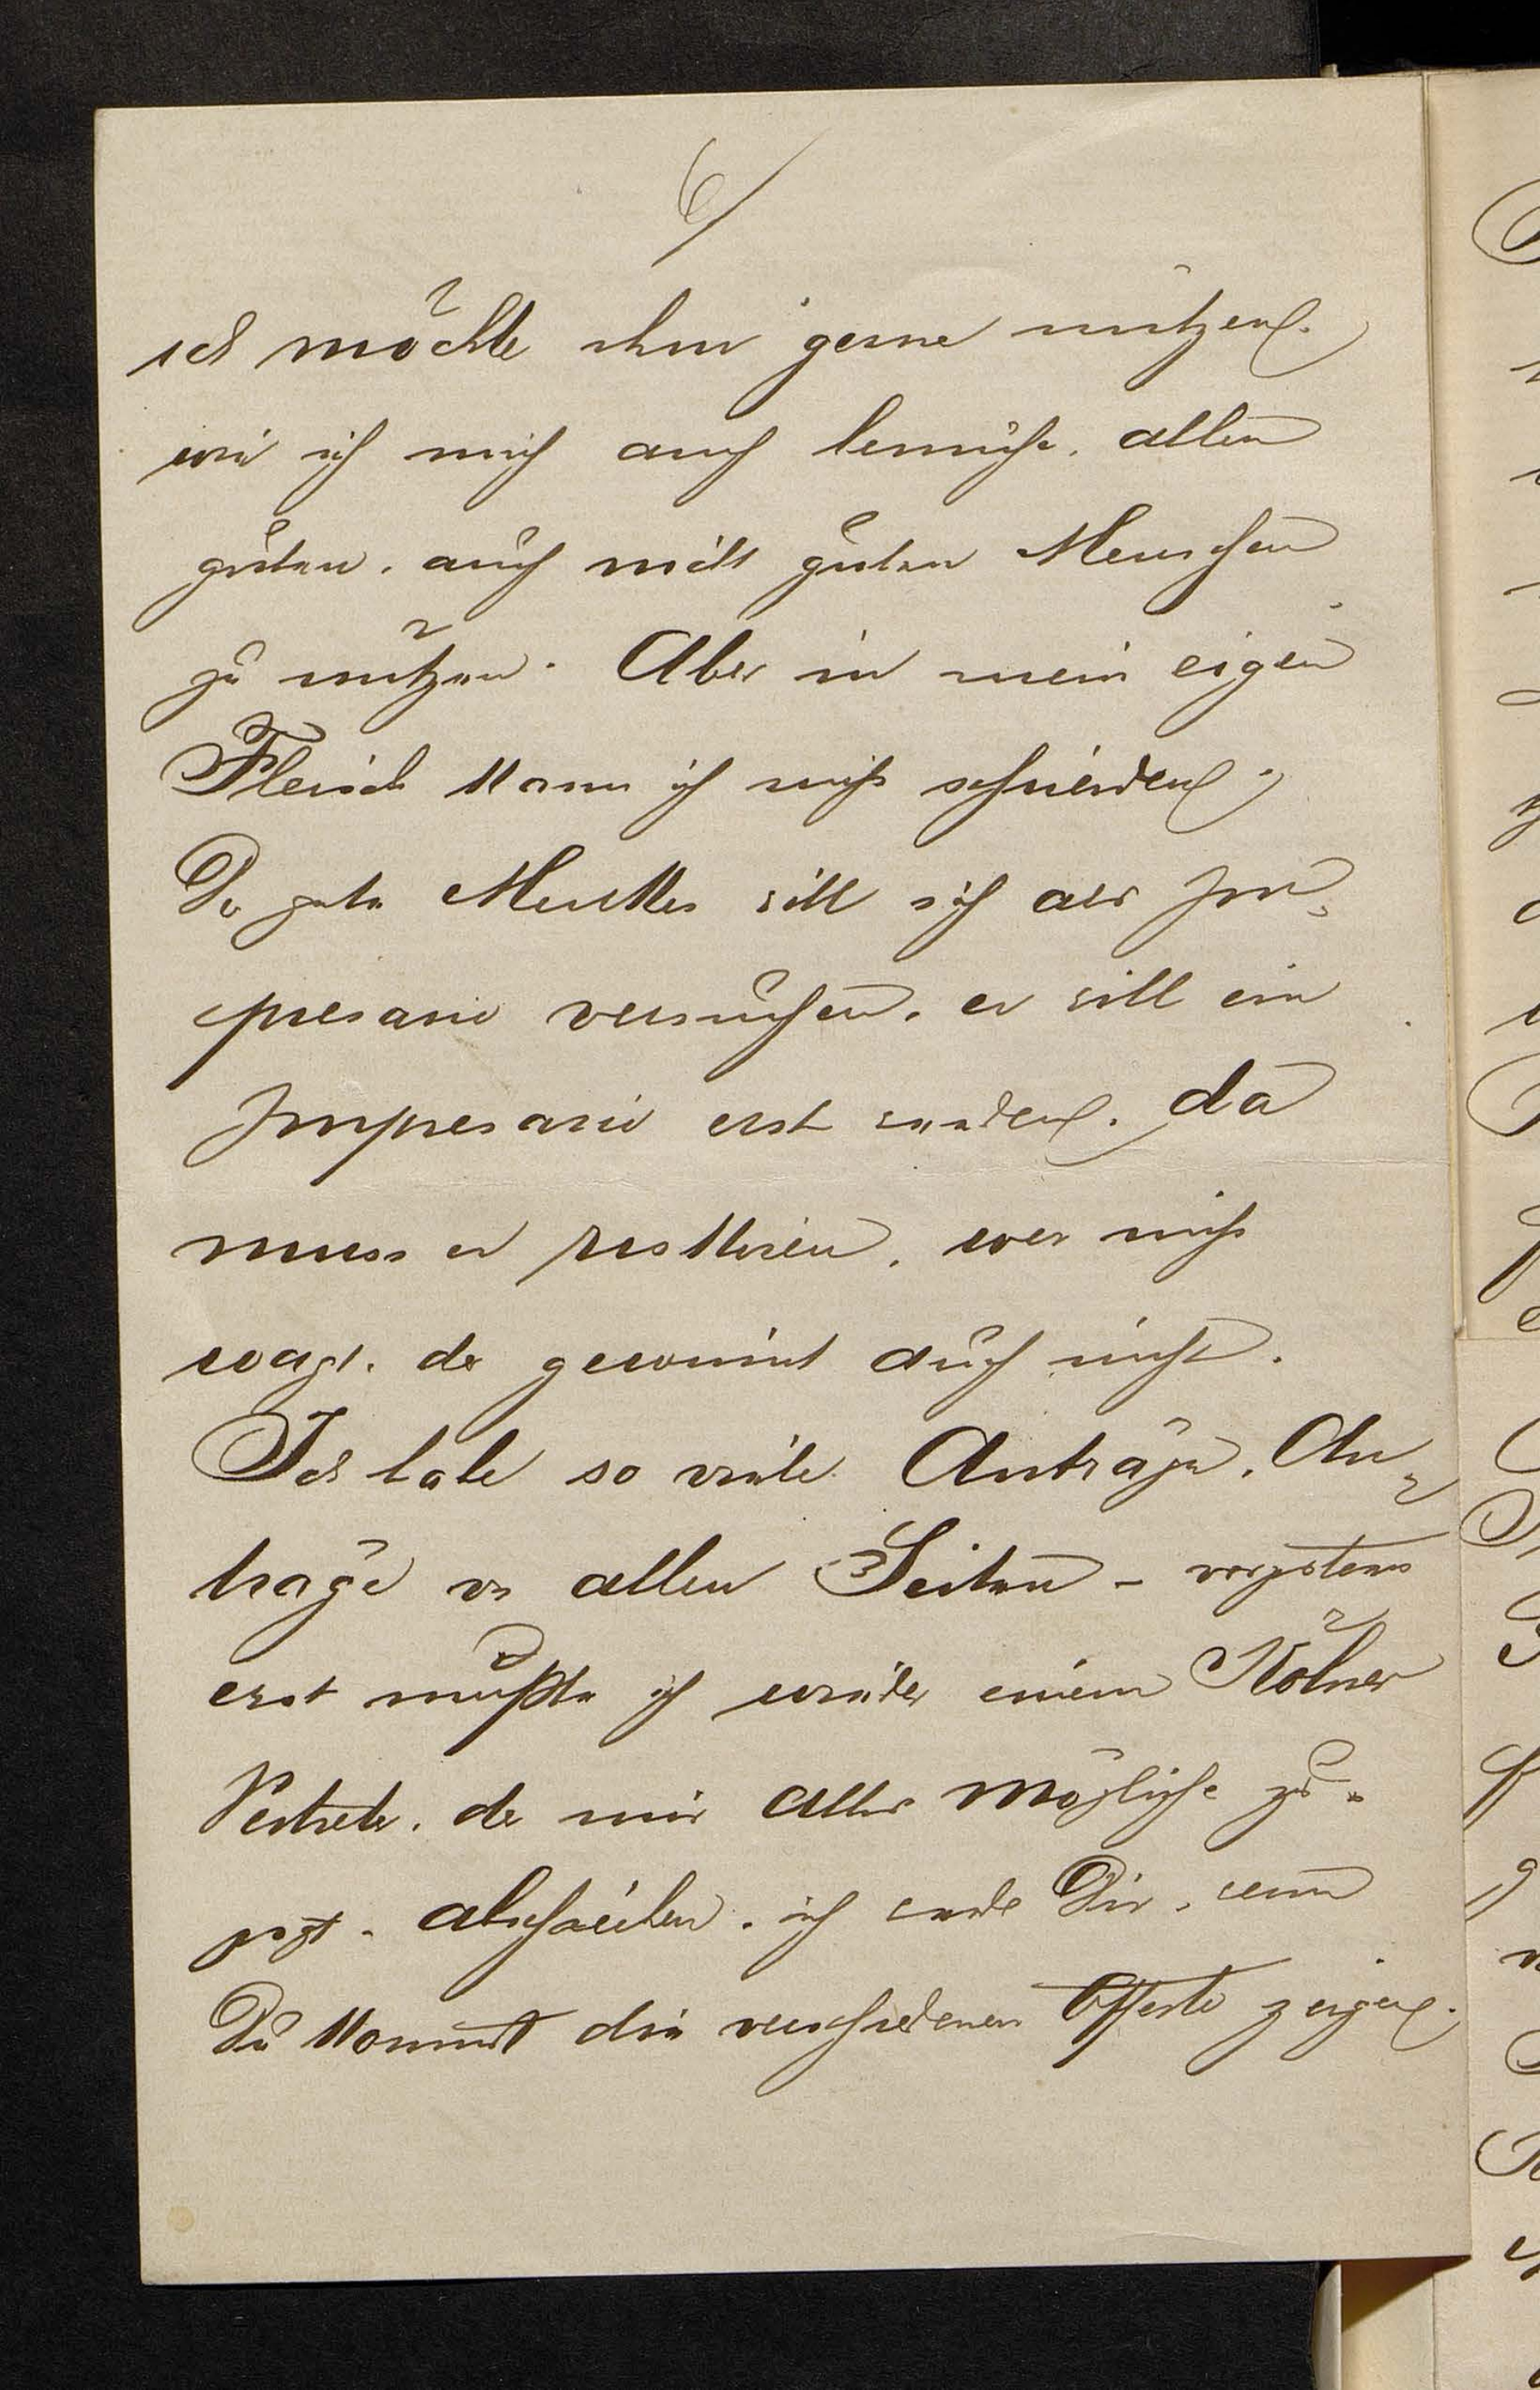 6/
ich möchte ihm gerne nützen.
wie ich mich auch bemühe, allen
guten, auch nicht guten Menschen
zu nützen. Aber in mein eigen
Fleisch kann ich nicht schneiden,
De gute Merkles will sich als Im¬
presario versuchen, er will ein
Impresario erst werden. da
muss er riskiren, wer nicht
wagt, der gewinnt auch nicht.
Ich habe so viele Anträge, An¬
träge von allen Seiten - vorgestern
erst mußte ich wieder einem Kölner
Vertreter, der mir alles mögliche zu¬
sagt, abschreiben, ich werde Dir, wenn
Du kommst die verschiedenen Offerte zeigen.